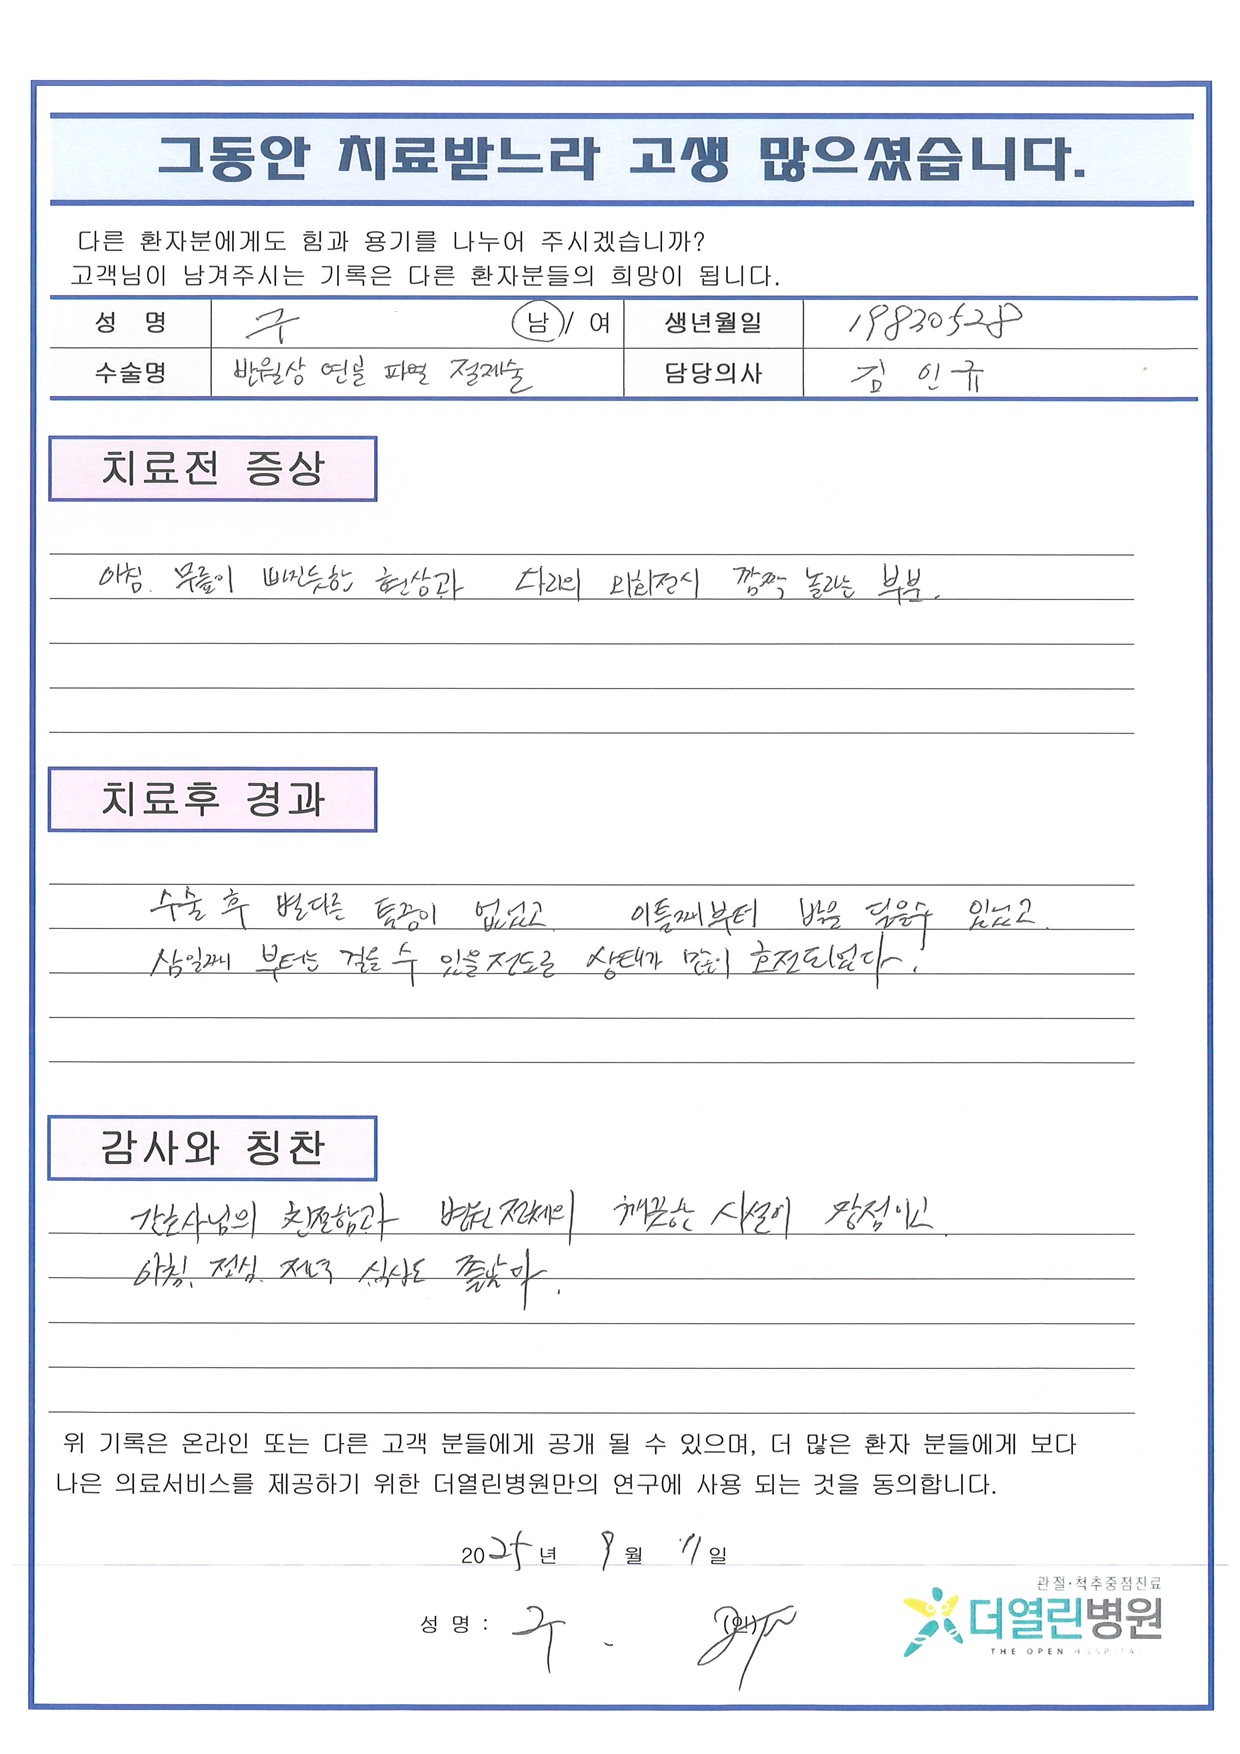 그동안 치료받느라 고생 많으셨습니다.
다른 환자분에게도 힘과 용기를 나누어 주시겠습니까?
고객님이 남겨주시는 기록은 다른 환자분들의 희망이 됩니다.
성 명 구 남 / 여 생년월일 19830528
수술명 반월상 연블 파열 절제술 담당의사 김 인규
치료전 증상
아침. 무릎이 빠진듯한 현상과 다리의 외회전시 깜짝 놀라는 부분.
치료후 경과
수술 후 별다른 통증이 없었고. 이틀째부터 발을 딛을수 있었고.
삼일째 부터는 걸을 수 있을정도로 상태가 많이 호전되었다.
감사와 칭찬
간호사님의 친절함과 병원전체의 깨끗한 시설이 장점이고
아침. 점심. 저녁 식사도 좋았다.
위 기록은 온라인 또는 다른 고객 분들에게 공개 될 수 있으며, 더 많은 환자 분들에게 보다
나은 의료서비스를 제공하기 위한 더열린병원만의 연구에 사용 되는 것을 동의합니다.
2025년 9월 11일
성 명 : 구 . (인)
관절·척추중점진료
더열린병원
THE OPEN HOSPITAL